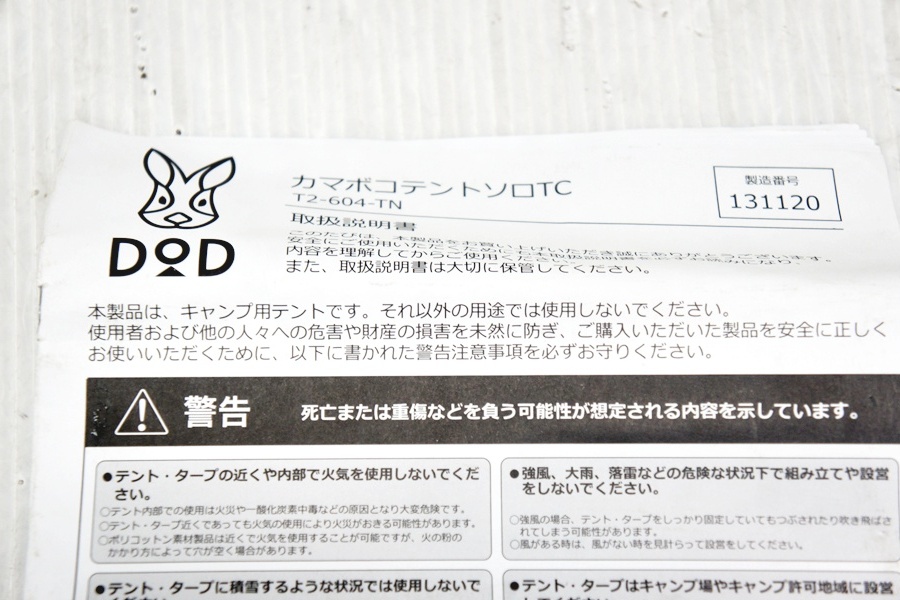 DOD
カマボコテントソロTC
T2-604-TN
製造番号
131120
取扱説明書
このたびは、本製品をお買い上げいただき誠にありがとうございます。
安全にご使用いただくために
内容を理解してからご使用くだ
また、取扱説明書は大切に保管してください。
本製品は、キャンプ用テントです。それ以外の用途では使用しないでください。
使用者および他の人々への危害や財産の損害を未然に防ぎ、ご購入いただいた製品を安全に正しく
お使いいただくために、以下に書かれた警告注意事項を必ずお守りください。
警告 死亡または重傷などを負う可能性が想定される内容を示しています。
●テント・タープの近くや内部で火気を使用しないでくだ
さい。
○テント内部での使用は火災や一酸化炭素中毒などの原因となり大変危険です。
○テント・タープ近くであっても火気の使用により火災がおきる可能性があります。
○ポリコットン素材製品は近くで火気を使用することが可能ですが、火の粉の
かかり方によって穴が空く場合があります。
●強風、大雨、落雷などの危険な状況下で組み立てや設営
をしないでください。
○強風の場合、テント・タープをしっかり固定していてもつぶされたり吹き飛ばさ
れてしまう可能性があります。
○風がある時は、風がない時を見計らって設営をしてください。
●テント・タープに積雪するような状況では使用しないで
●テント・タープはキャンプ場やキャンプ許可地域に設営